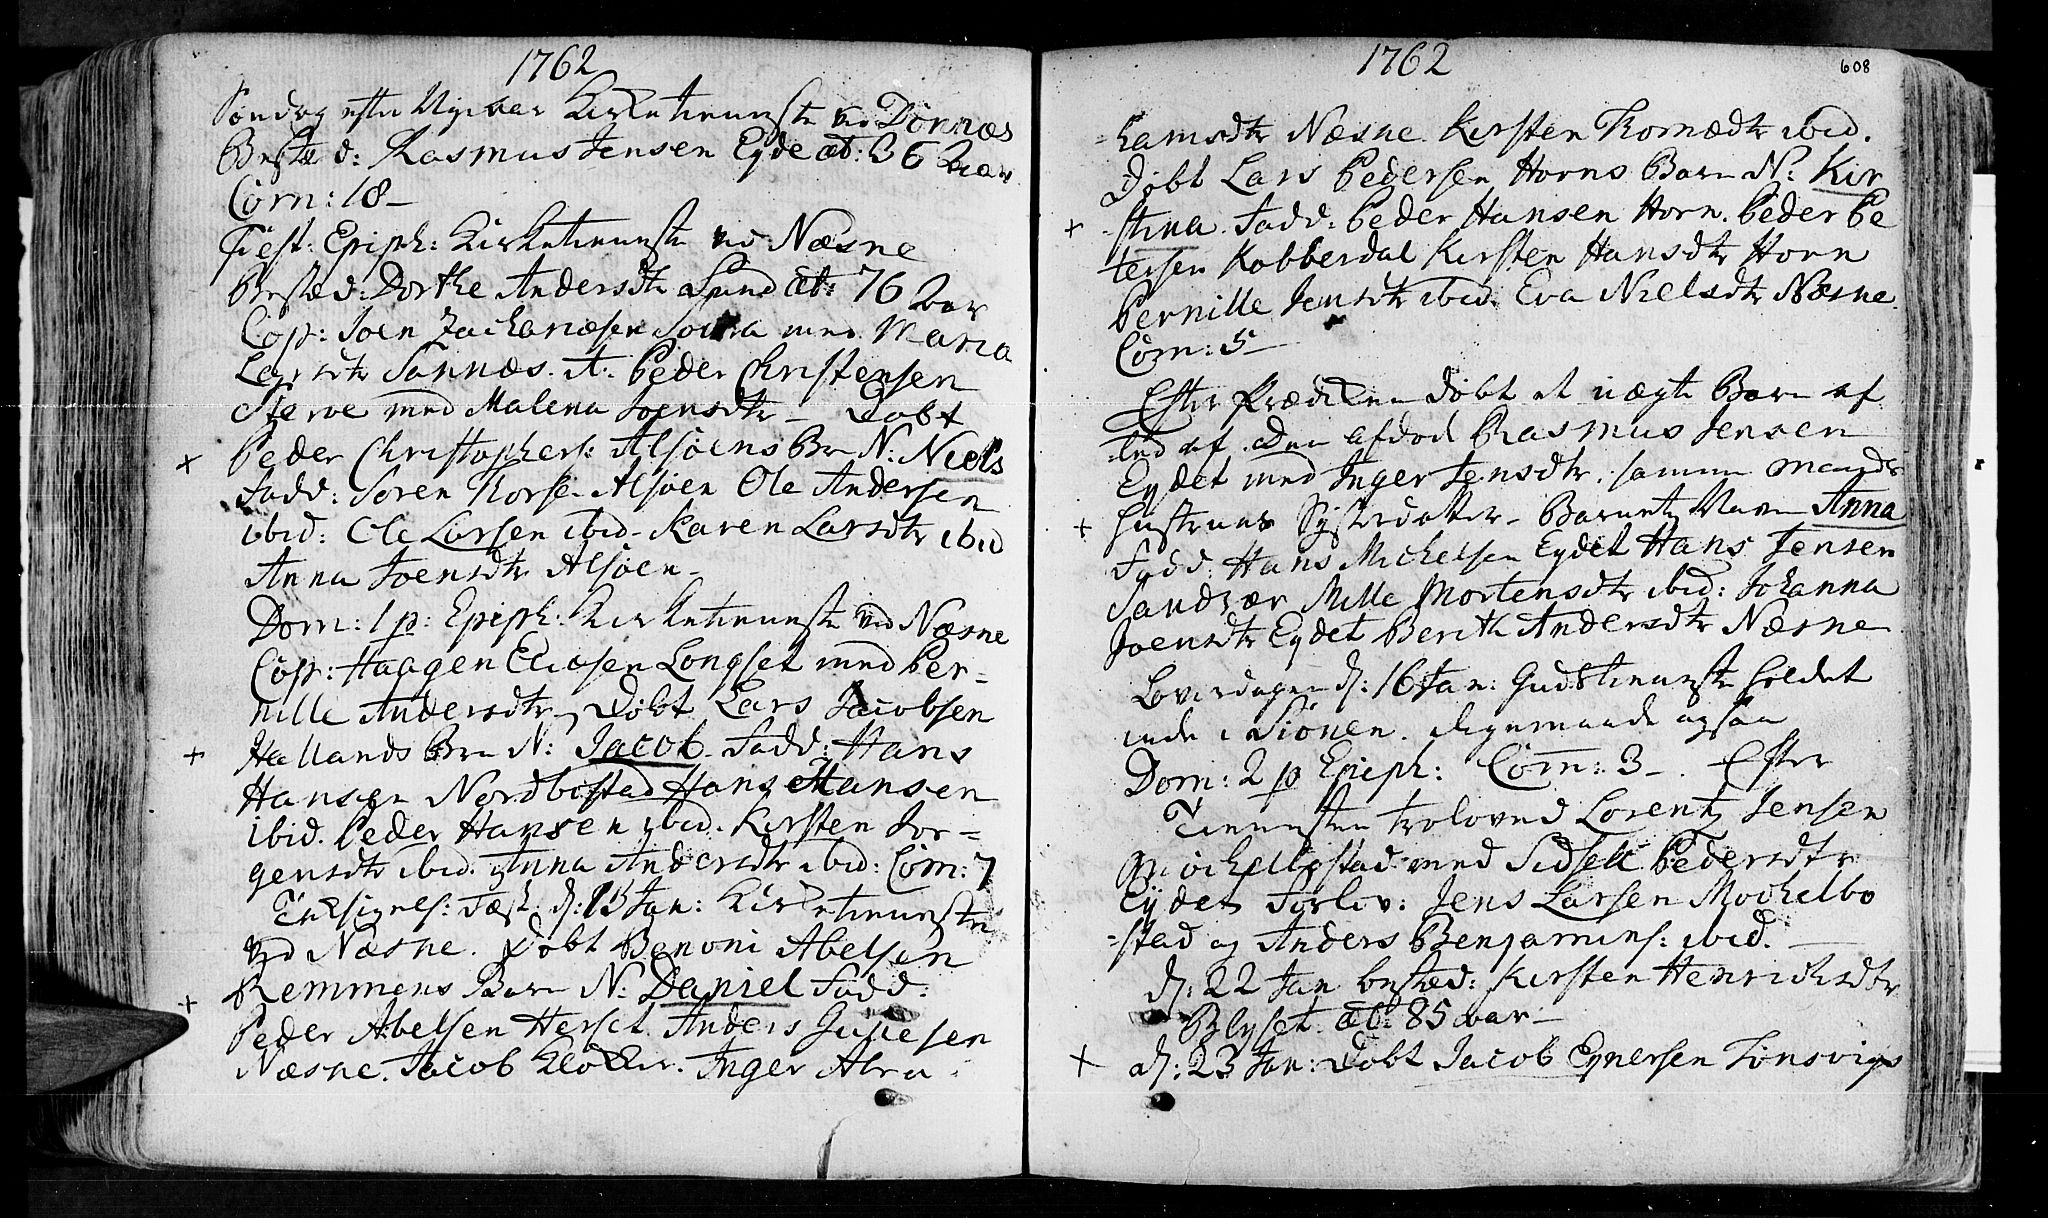 1762
Søndag efter Nyeaar Kirketieneste ved Dønnæs
Bested: Rasmus Jensen Eyde æt: 36 aar
Com: 18 -
Fest: Epiph: Kirketieneste ved Næsne
Bested: Dorthe Andersdtr Sund æt: 76 aar
Cop: Joen Zachariæsen med Maria
Larsdtr Sannæs. It: Peder Christensen
med Malena Joensdtr - Døbt
+ Peder Christophers: Alsøens Brn N: Niels
Fadd: Søren Thorsen Alsøen Ole Andersen
ibid: Ole Larsen ibid - Karen Larsdtr ibid
Anna Joensdtr Alsøen -
Dom: 1 p: Epiph: Kirketieneste ved Næsne
Cop: Haagen Eliæsen Longset med Per-
nille Andersdtr - Døbt Lars Jacobsen
+ Hallands Brn N: Jacob. Fadd: Hans
Hansen Nordbostad Hans Hansen
ibid. Peder Hansen ibid. Kirsten Jor=
gensdtr ibid. Anna Andersdtr ibid: Com: 7
Tacksigels: Fæst. d: 13 Jan: Kirketieneste
ved Næsne. Døbt Benoni Abelsen
+ Remmens Barn N: Daniel Fadd:
Peder Abelsen Herset Anders
Næsne. Jacob Klocker. Inger Abra-
1762
608
=hamsdtr Næsne. Kirsten Thomædtr ibid.
Døbt Lars Pedersen Horns Barn N: Kir
+ -stina. Fadd: Peder Hansen Horn. Peder Pe
tersen Kobberdal Kirsten Hansdtr Horn
Pernille Jensdtr ibid. Eva Nielsdtr Næsne
Com: 5 -
Efter Prædiken døbt et uægte Barn af
led af den afdød Rasmus Jensen
Eydet med Inger Jensdtr. samme Mands
+ Hustrues Systerdatter - Barnets Navn Anna
Fadd: Hans Michelsen Eydet Hans Jensen
Sandvær Mille Mortensdtr ibid: Johanna
Joensdtr Eydet Berith Andersdtr Næsne
Løverdagen d: 16 Jan: Gudstieneste holdet
inde i Stonen. ligemaade ogsaa
Dom: 2 p Epiph: Com: 3 - . Efter
Tienesten troloved Lorentz Jensen
Mochelbostad med Sidsell Pedersdtr
Eydet Forlov: Jens Larsen Mochelbo
-stad og Anders Benjamins: ibid.
d: 22 Jan bested: Kirsten Henrichsdtr
Blyset. æt: 85 aar -
+ d: 23 Jan: Døbt Jacob Eynersen Tonsvigs